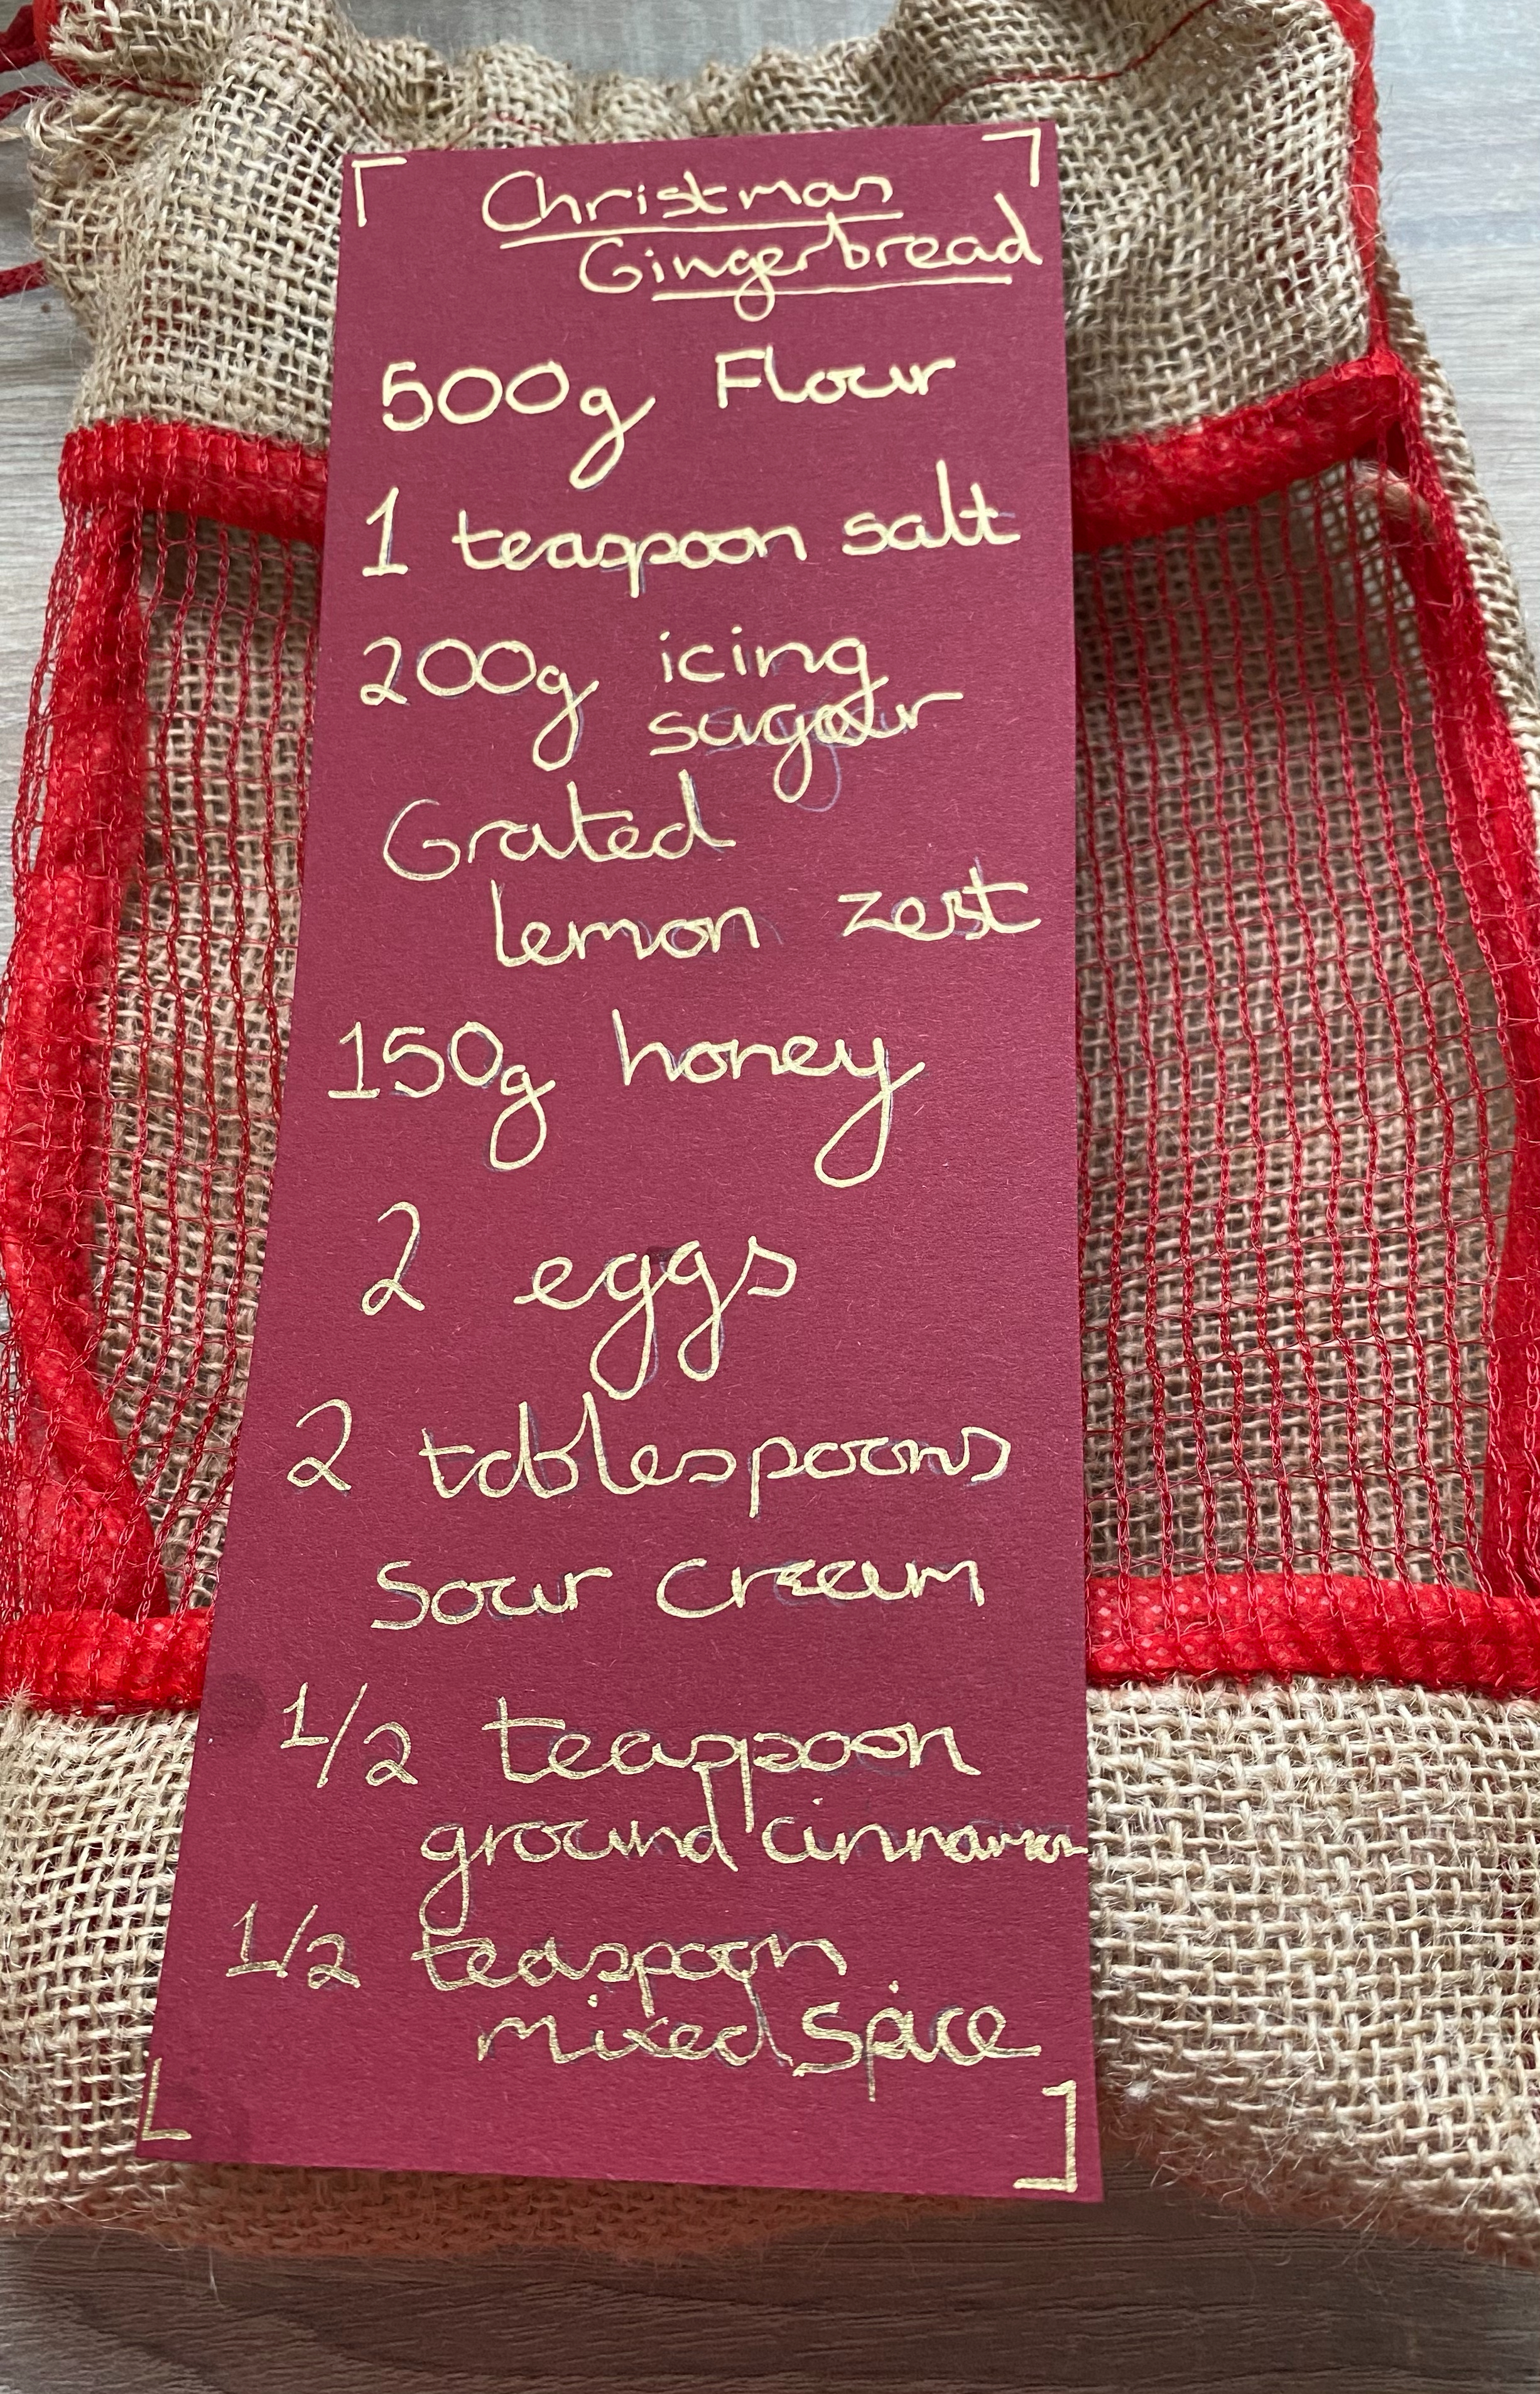 Christmas
Gingerbread
500g Flour
1 teaspoon salt
200g icing
sugar
Grated
lemon zest
150g honey
2 eggs
2 tablespoons
Sour cream
1/2 teaspoon
ground cinnamon
1/2 teaspoon
mixed spice